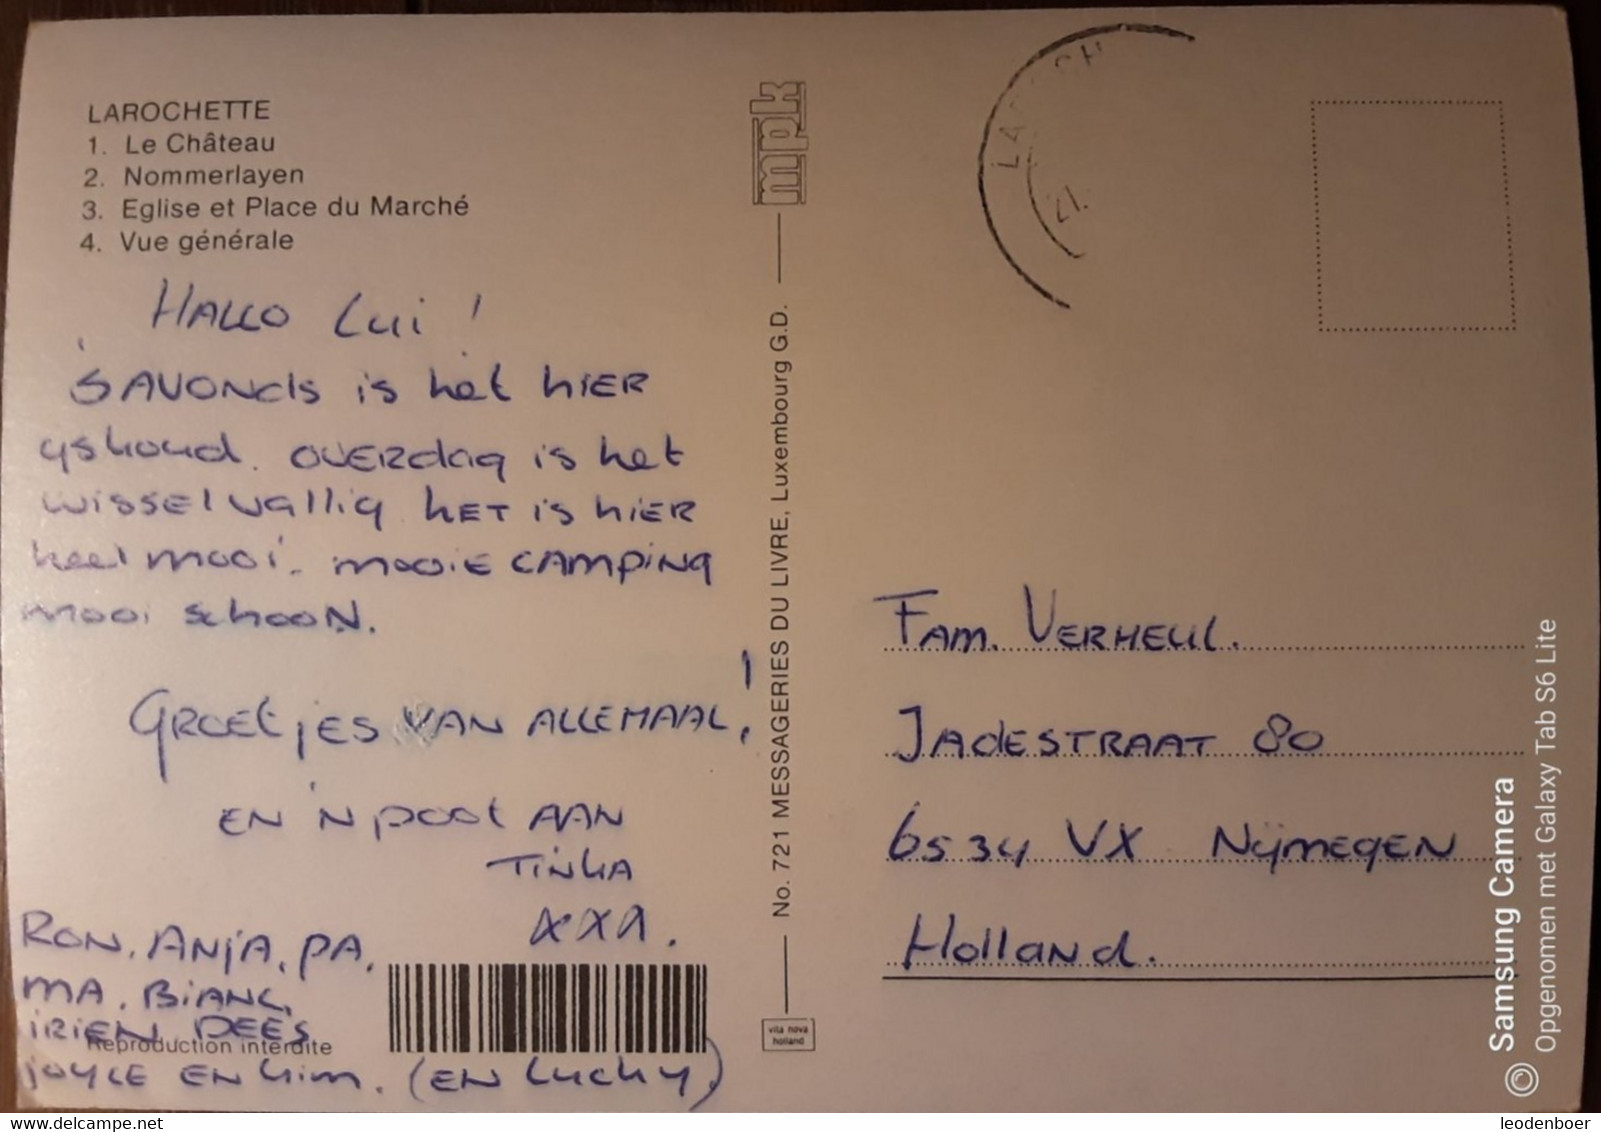 LAROCHETTE
1. Le Château
2. Nommerlayen
3. Eglise et Place du Marché
4. Vue générale
HALLO Lui !
'SAVONds is het hiER
yskoud. OVERdag is het
wisselvallig HET is hiER
heel mooi. mooiE CAMPiNg
mooi SchooN.
GROEtjES VAN ALLEMAAL!
EN 'N poot AAN
TiNkA
XXX.
RON. ANjA, PA.
MA. BiANC,
iRiEN DEES
Reproduction interdite
joyce EN Kim. (EN Lucky)
mpk
No. 721 MESSAGERIES DU LIVRE, Luxembourg G.D.
vita nova
holland
21.
FAM. VERHEUL.
JAdESTRAAT 80
6534 VX NijmegEN
HollaNd.
© Samsung Camera
Opgenomen met Galaxy Tab S6 Lite
delcampe.net
leodenboer